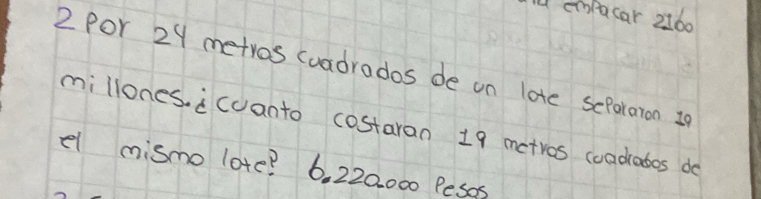 empacar 2160
2 Por 24 metros cuadrados de un lote separaron 19
millones.¿cuanto costaran 19 metros cuadrados de
el mismo lote? 6.220.000 Pesos